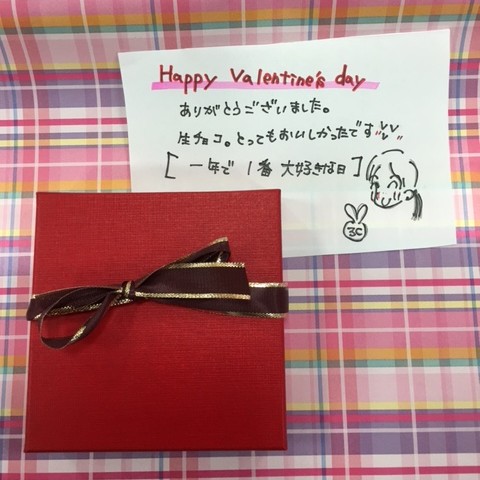 Happy Valentine's day
ありがとうございました。
生チョコ。とってもおいしかったです
[ 一年で 1番 大好きな日 ]
3C